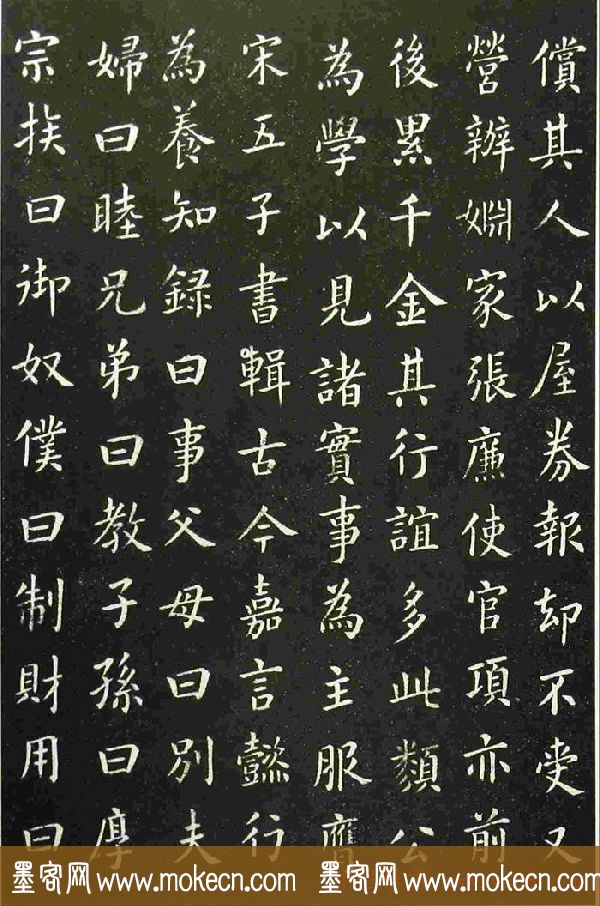 償其人以屋券報却不受又
營辦婣家張廉使官項亦前
後累千金其行誼多此類公
為學以見諸實事為主服膺
宋五子書輯古今嘉言懿行
為養知録曰事父母曰別夫
婦曰睦兄弟曰教子孫曰厚
宗族曰御奴僕曰制財用曰
墨客网 www.mokecn.com 墨客网 www.mokecn.com